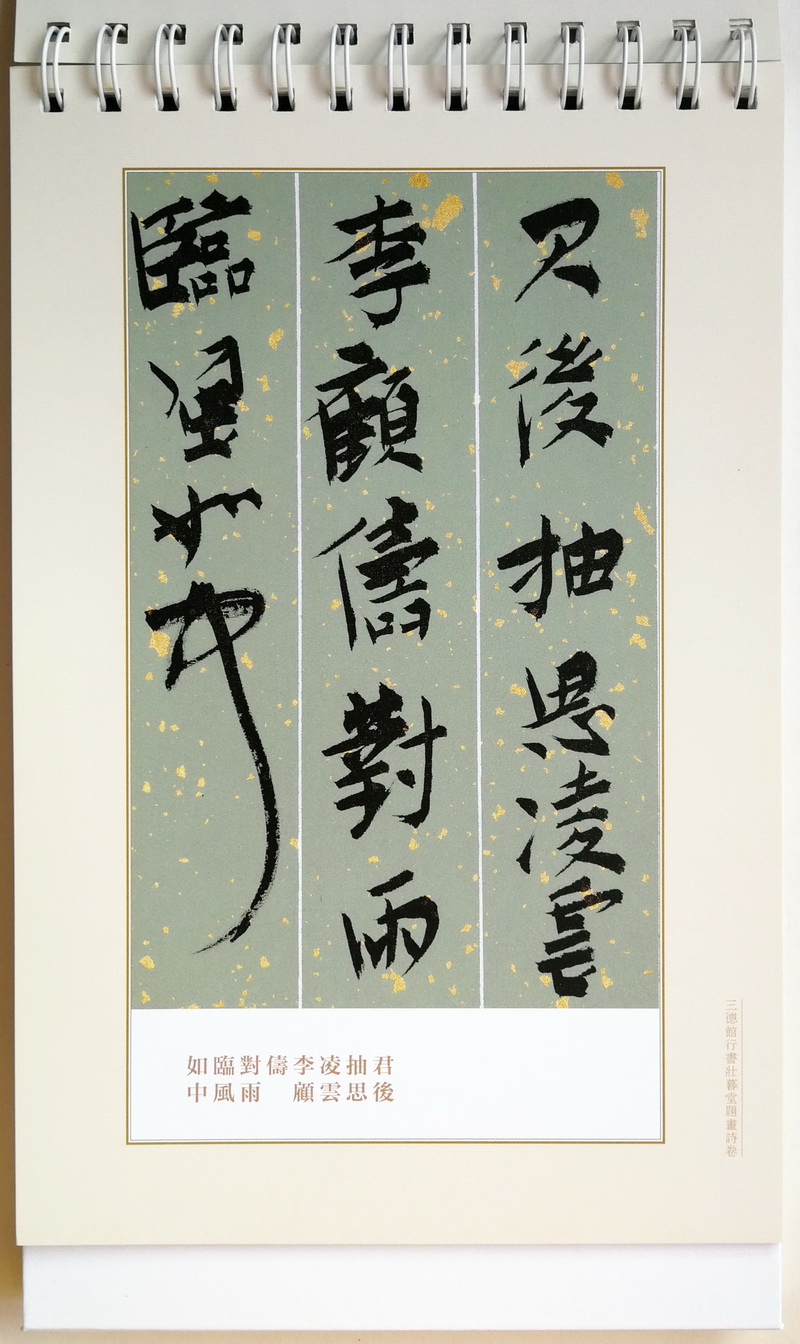 君後抽思凌雲
李顧儔對雨
臨風如中
君後
抽思
凌雲
李顧
儔
對雨
臨風
如中
三德館行書壯暮堂題畫詩卷